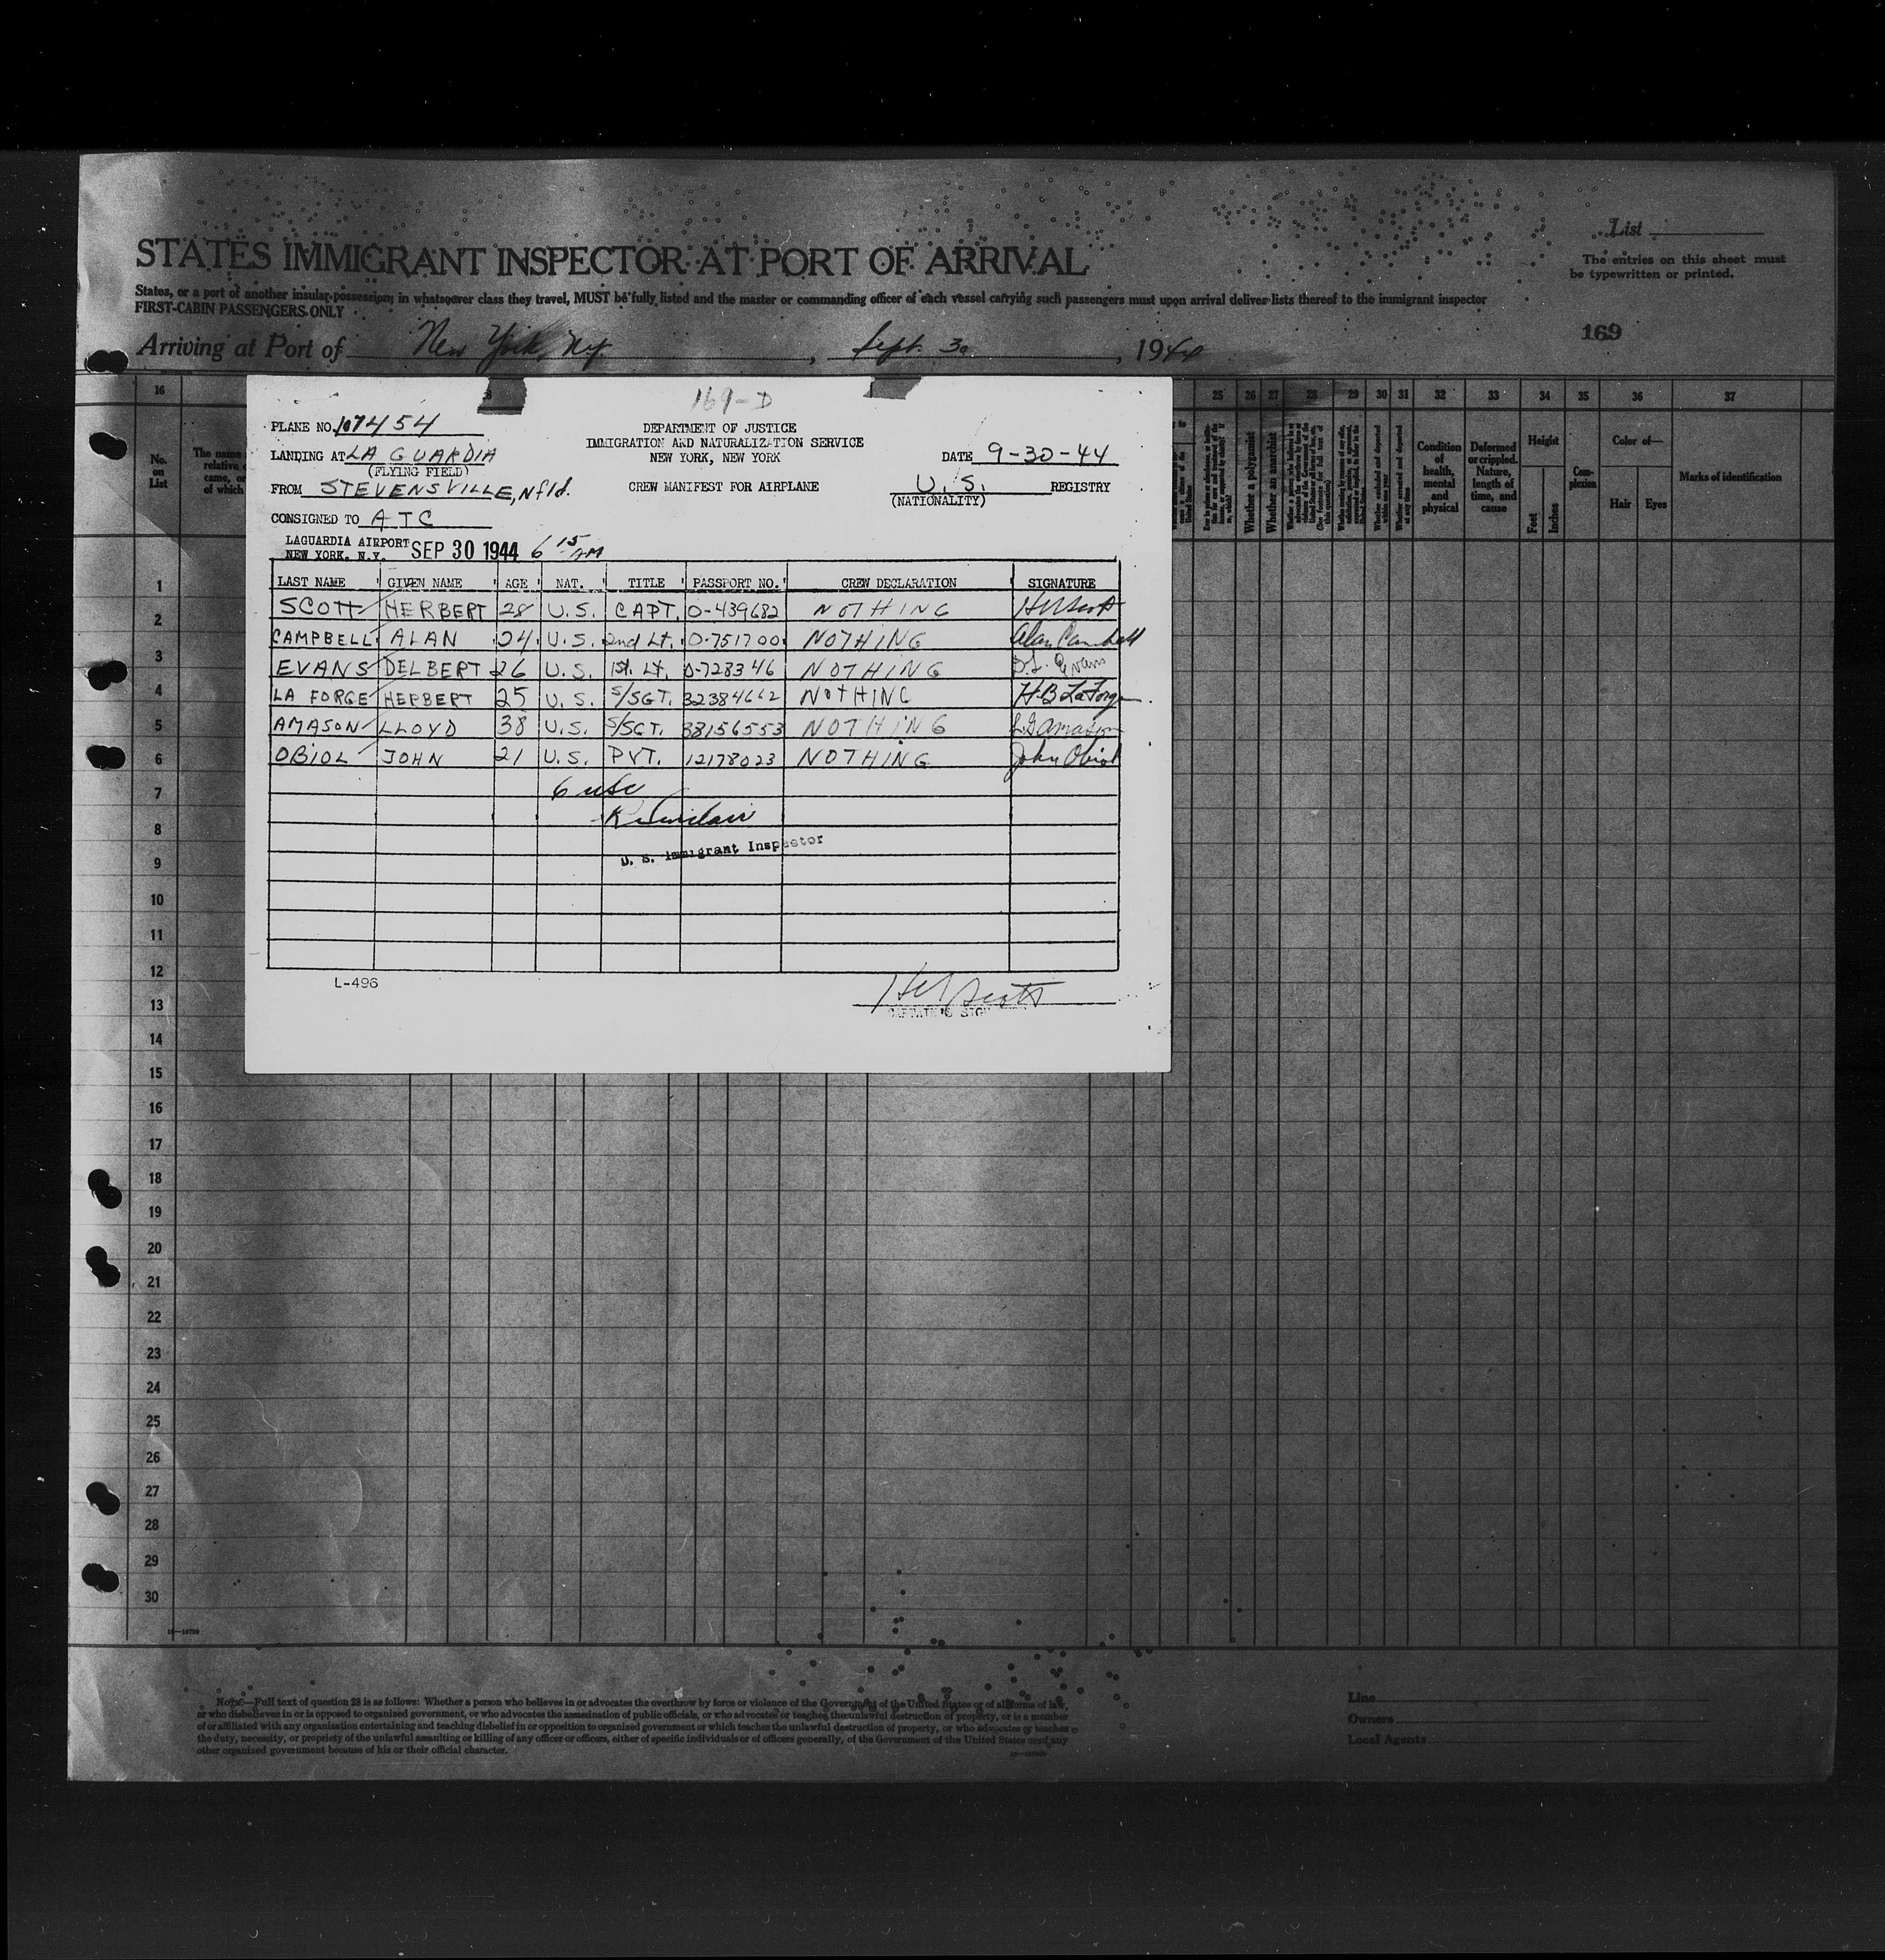 List
STATES IMMIGRANT INSPECTOR AT PORT OF ARRIVAL
The entries on this sheet must
be typewritten or printed.
States, or a port of another insular possession, in whatsoever class they travel, MUST be fully listed and the master or commanding officer of each vessel carrying such passengers must upon arrival deliver lists thereof to the immigrant inspector
FIRST-CABIN PASSENGERS ONLY
169
Arriving at Port of New York, Ny. , Sept. 30 , 1944
16 25 26 27 28 29 30 31 32 33 34 35 36 37
No. on List
Whether a polygamist
Whether an anarchist
Condition of health, mental and physical
Deformed or crippled. Nature, length of time, and cause
Height
Feet Inches
Complexion
Color of—
Hair Eyes
Marks of identification
169-D
PLANE NO. 107454
DEPARTMENT OF JUSTICE
IMMIGRATION AND NATURALIZATION SERVICE
LANDING AT LA GUARDIA NEW YORK, NEW YORK DATE 9-30-44
(FLYING FIELD)
FROM STEVENSVILLE, Nfld. CREW MANIFEST FOR AIRPLANE U.S. REGISTRY
(NATIONALITY)
CONSIGNED TO ATC
LAGUARDIA AIRPORT
NEW YORK, N.Y. SEP 30 1944 6 15 AM
LAST NAME GIVEN NAME AGE NAT. TITLE PASSPORT NO. CREW DECLARATION SIGNATURE
SCOTT HERBERT 28 U.S. CAPT. O-439682 NOTHING H Scott
CAMPBELL ALAN 24 U.S. 2nd Lt. O-751700 NOTHING Alan Campbell
EVANS DELBERT 26 U.S. 1st. Lt. O-728346 NOTHING D.L. Evans
LA FORGE HERBERT 25 U.S. S/SGT. 32384662 NOTHING H.B LaForge
AMASON LLOYD 38 U.S. S/SGT. 38156553 NOTHING L.G Amason
OBIOL JOHN 21 U.S. PVT. 12178023 NOTHING John Obiol
6 usc
U. S. Immigrant Inspector
L-496
H Scott
CAPTAIN'S SIG
1
2
3
4
5
6
7
8
9
10
11
12
13
14
15
16
17
18
19
20
21
22
23
24
25
26
27
28
29
30
NOTE—Full text of question 28 is as follows: Whether a person who believes in or advocates the overthrow by force or violence of the Government of the United States or of all forms of law,
or who disbelieves in or is opposed to organized government, or who advocates the assassination of public officials, or who advocates or teaches the unlawful destruction of property, or is a member
of or affiliated with any organization entertaining and teaching disbelief in or opposition to organized government or which teaches the unlawful destruction of property, or who advocates or teaches
the duty, necessity, or propriety of the unlawful assaulting or killing of any officer or officers, either of specific individuals or of officers generally, of the Government of the United States or of any
other organized government because of his or their official character.
Line
Owners
Local Agents